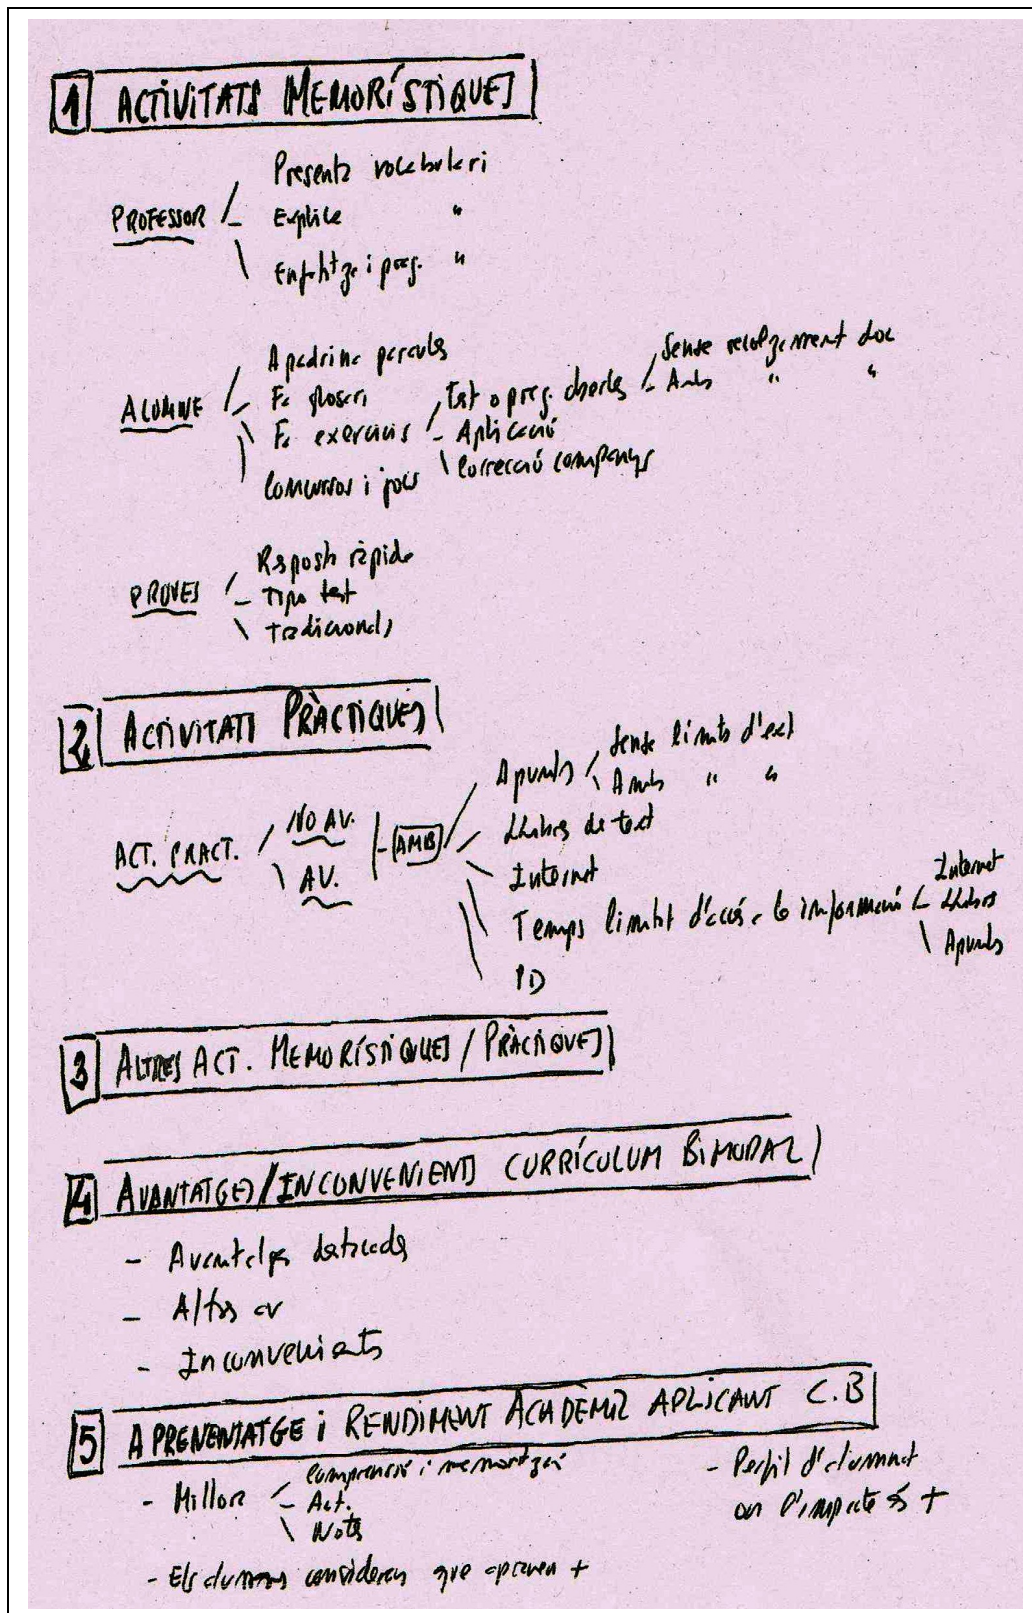 1 ACTIVITATS MEMORÍSTIQUES
Presenta vocabulari
PROFESSOR Explica "
Enfatitza i preg. "
Apadrina paraules
ALUMNE Fa glosari
Fa exercicis
Concursos i jocs
Test o preg. obertes
Aplicació
Correcció companys
Sense recolzament doc
Amb " "
PROVES
Resposta ràpida
Tipo test
Tradicionals
2 ACTIVITATS PRÀCTIQUES
ACT. PRACT.
NO AV.
AV.
AMB
Apunts
Sense límits d'ext
Amb " "
Llibres de text
Internet
Temps limitat d'accés a la informació
Internet
Llibres
Apunts
PD
3 ALTRES ACT. MEMORÍSTIQUES / PRÀCTIQUES
4 AVANTATGES/INCONVENIENTS CURRÍCULUM BIMODAL
- Avantatges destacades
- Altres av
- Inconvenients
5 APRENENTATGE i RENDIMENT ACADÈMIC APLICANT C.B
- Millora
Comprensió i memorització
Act.
Notes
- Perfil d'alumnat
on l'impacte és +
- Els alumnes consideren que aprenen +